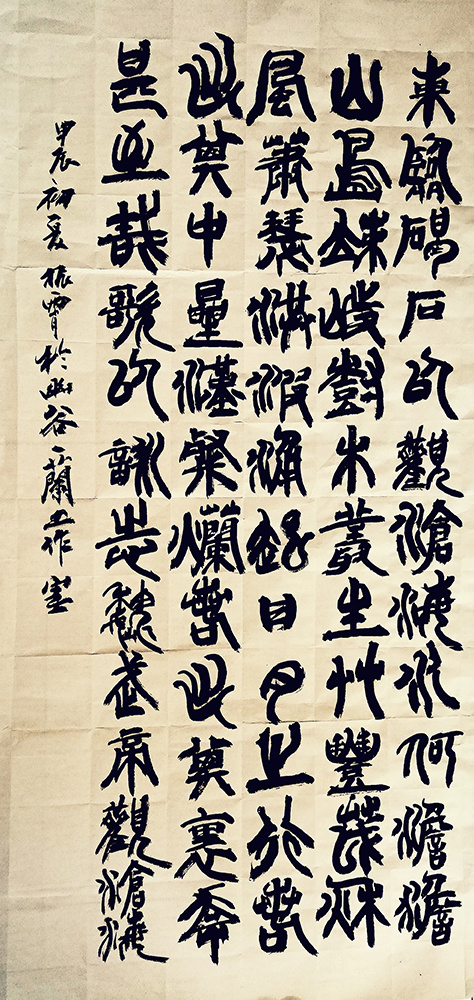 東臨碣石以觀滄海水何澹澹
山島竦峙樹木叢生艸豐茂秋
風蕭瑟洪波涌起日月之行若
出其中星漢粲爛若出其裏幸
甚至哉歌以詠志魏武帝觀滄海
甲辰初夏振霄於谷一蘭工作室